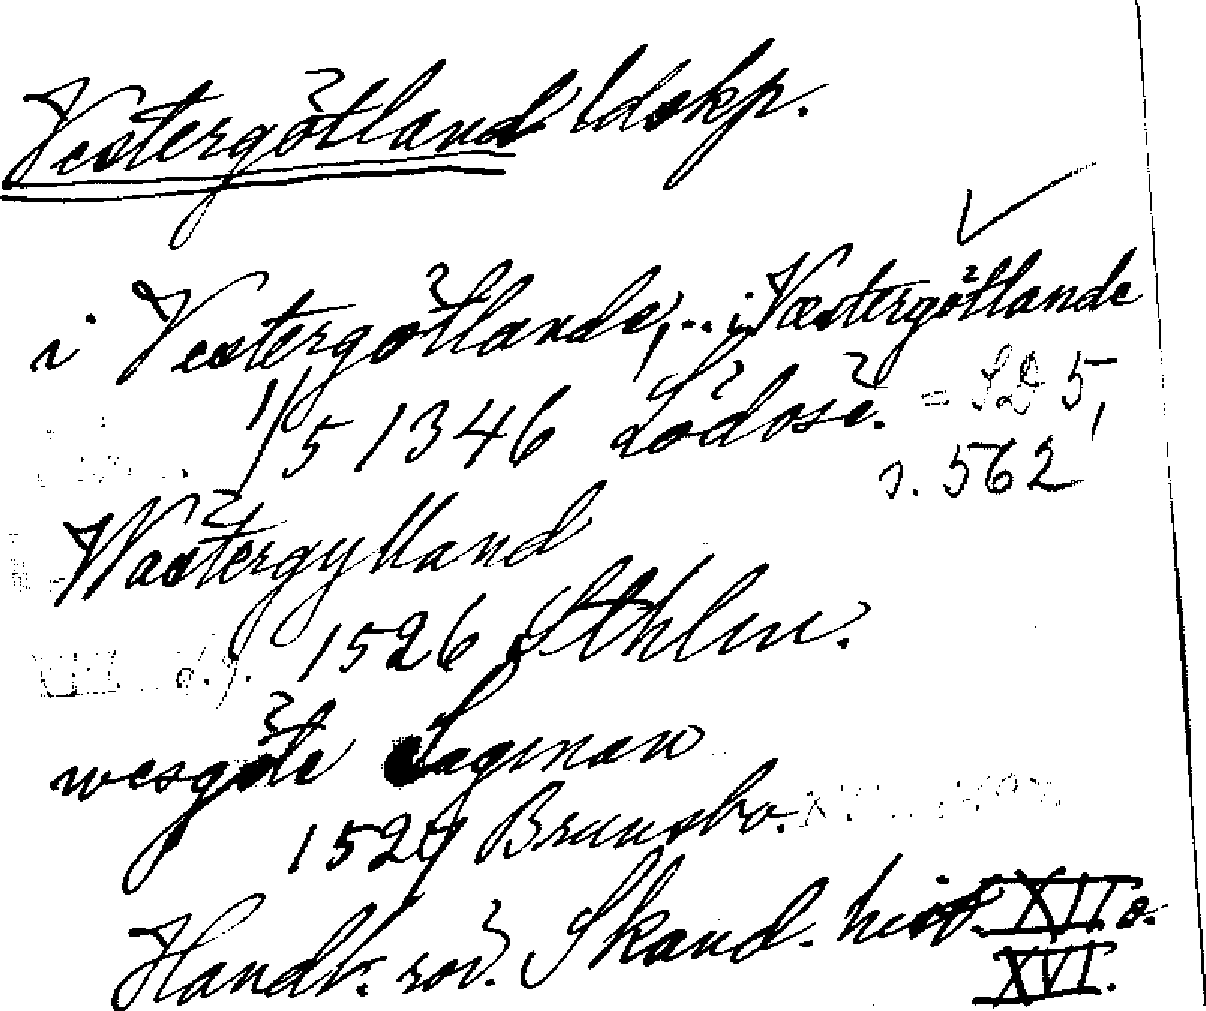 Vestergötland ldskp.
i Vestergötlande, .. i Væstergötlande
1/5 1346 Lödose. = SD 5,
s. 562
Wastergylland
1526 Sthlm.
wesgöte Lagman
1527 Brunsbo.
Handl. rör. Skand. hist. XII o.
XVI.